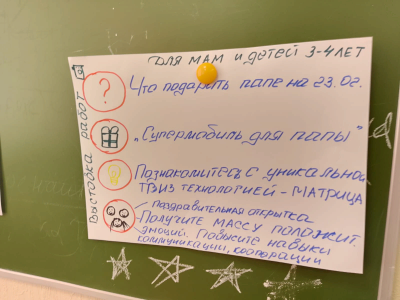 для мам и детей 3-4 лет
Выстовка работ
Что подарить папе на 23.02.
„Супермобиль для папы"
Познакомитесь с уникальной
ТРИЗ технологией - МАТРИЦА
поздравительная открытка
- Получите массу положит.
эмоций. Повысите навыки
коммуникации, кооперации